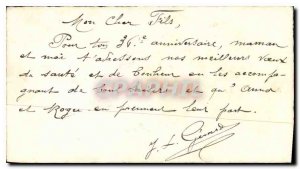 Mon Cher Fils,
Pour ton 36e anniversaire, maman
et moi t'adressons nos meilleurs vœux
de santé et de bonheur en les accompa-
gnant de et qu'
et Roger en prennent leur part.
J. L. Girard